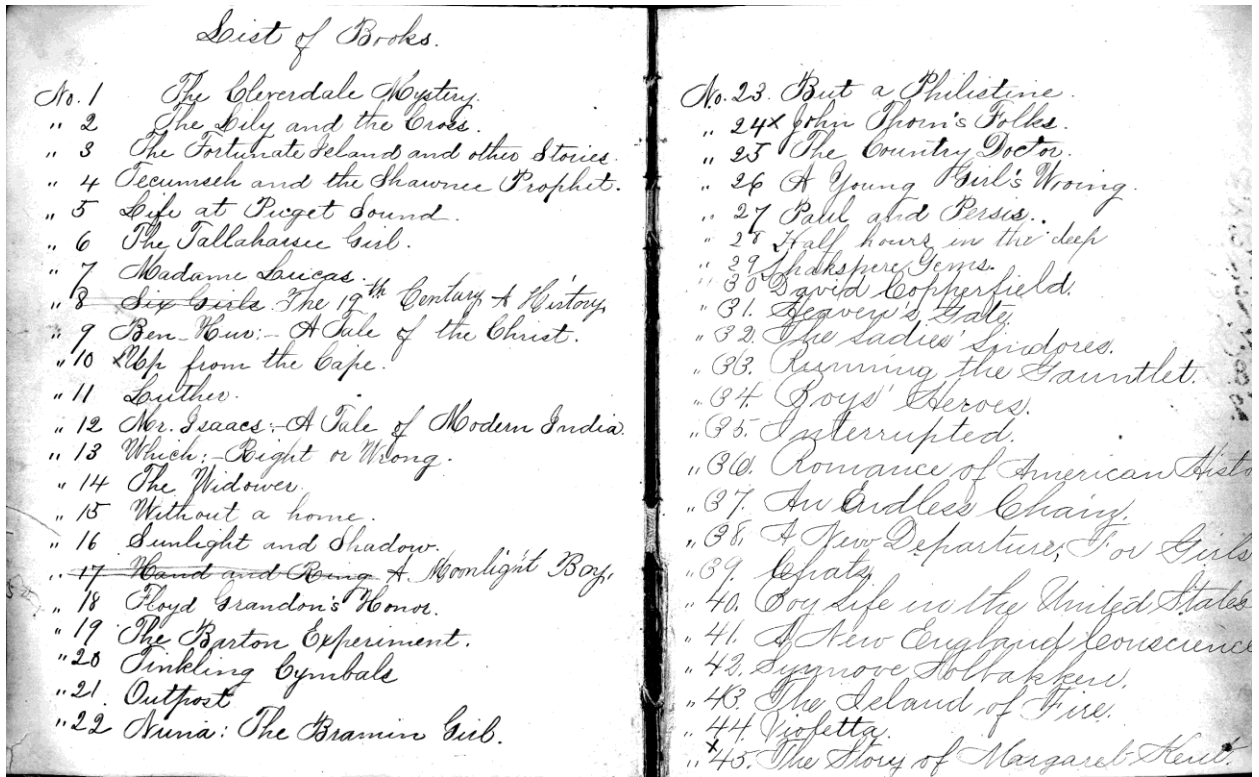 List of Books.
No. 1 The Cleverdale Mystery.
" 2 The Lily and the Cross.
" 3 The Fortunate Island and other Stories.
" 4 Tecumseh and the Shawnee Prophet.
" 5 Life at Puget Sound.
" 6 The Tallahassee Girl.
" 7 Madame Lucas.
" 8 Six Girls. The 19th Century A History
" 9 Ben-Hur:- A Tale of the Christ.
" 10 x Up from the Cape.
" 11 Luther.
" 12 Mr. Isaacs:- A Tale of Modern India.
" 13 Which:- Right or Wrong.
" 14 The Widower.
" 15 Without a home.
" 16 Sunlight and Shadow.
" 17 Hand and Ring A Moonlight Boy.
" 18 Floyd Grandon's Honor.
" 19 The Barton Experiment.
" 20 Tinkling Cymbals
" 21. Outpost
" 22 Nuna: The Bramin Girl.
No. 23. But a Philistine.
" 24 x John Thorn's Folks.
" 25 The Country Doctor.
" 26 A Young Girl's Wroing.
" 27 Paul and Persis..
" 28 Half hours in the deep
" 29 Shakspere Gems.
" 30 David Copperfield.
" 31. Heaven's Gate.
" 32. The Ladies' Lindores.
" 33. Running the Gauntlet.
" 34. Boys' Heroes.
" 35. Interrupted.
" 36. Romance of American Histo
" 37. An Endless Chain.
" 38. A New Departure, For Girls
" 39. Chats
" 40. Boy Life in the United States
" 41. A New England Conscience
" 42. Synnove Solbakken.
" 43. The Island of Fire.
" 44. Violetta.
x " 45. The Story of Margaret Kent.